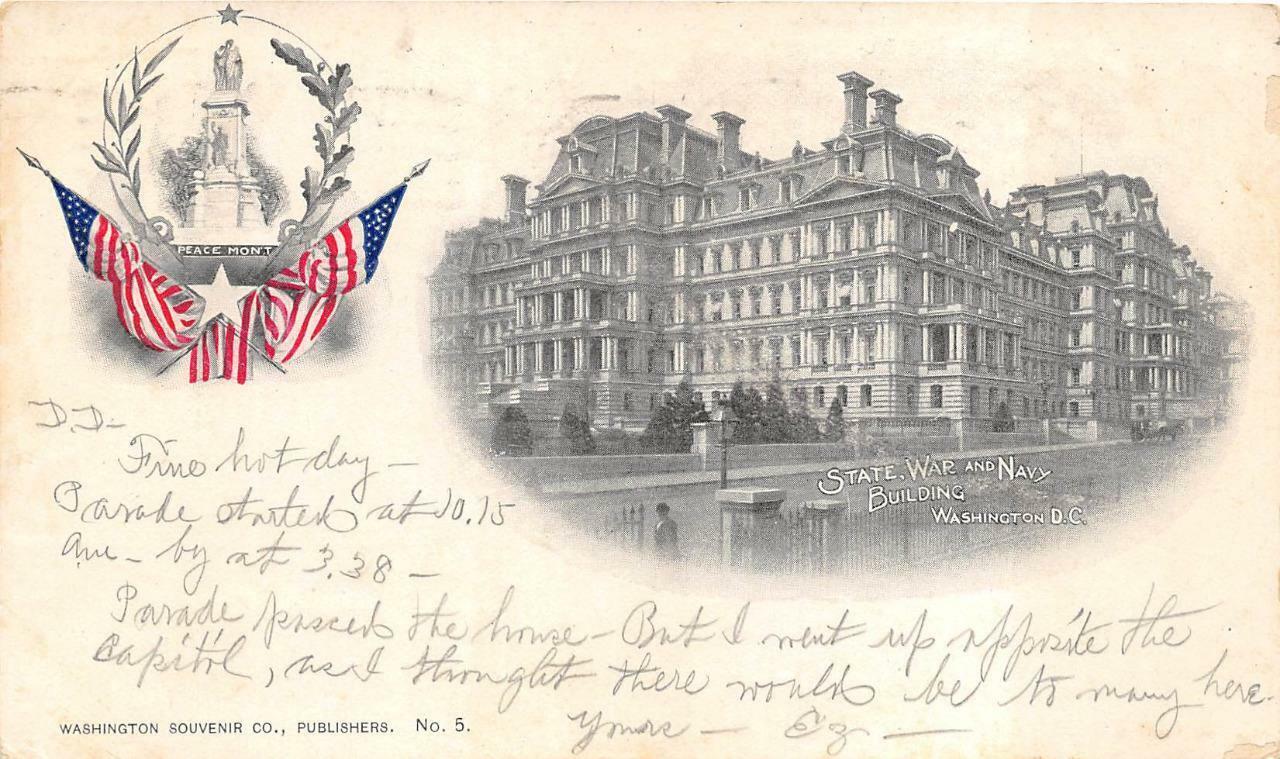 PEACE MON'T
STATE, WAR AND NAVY
BUILDING
WASHINGTON D.C.
D.D-
Fine hot day -
Parade started at 10.15
Am - by at 3.38 -
Parade passed the house - But I went up opposite the
Capitol, as I thought there would be to many here.
Yours - Ez -
WASHINGTON SOUVENIR CO., PUBLISHERS. No. 5.